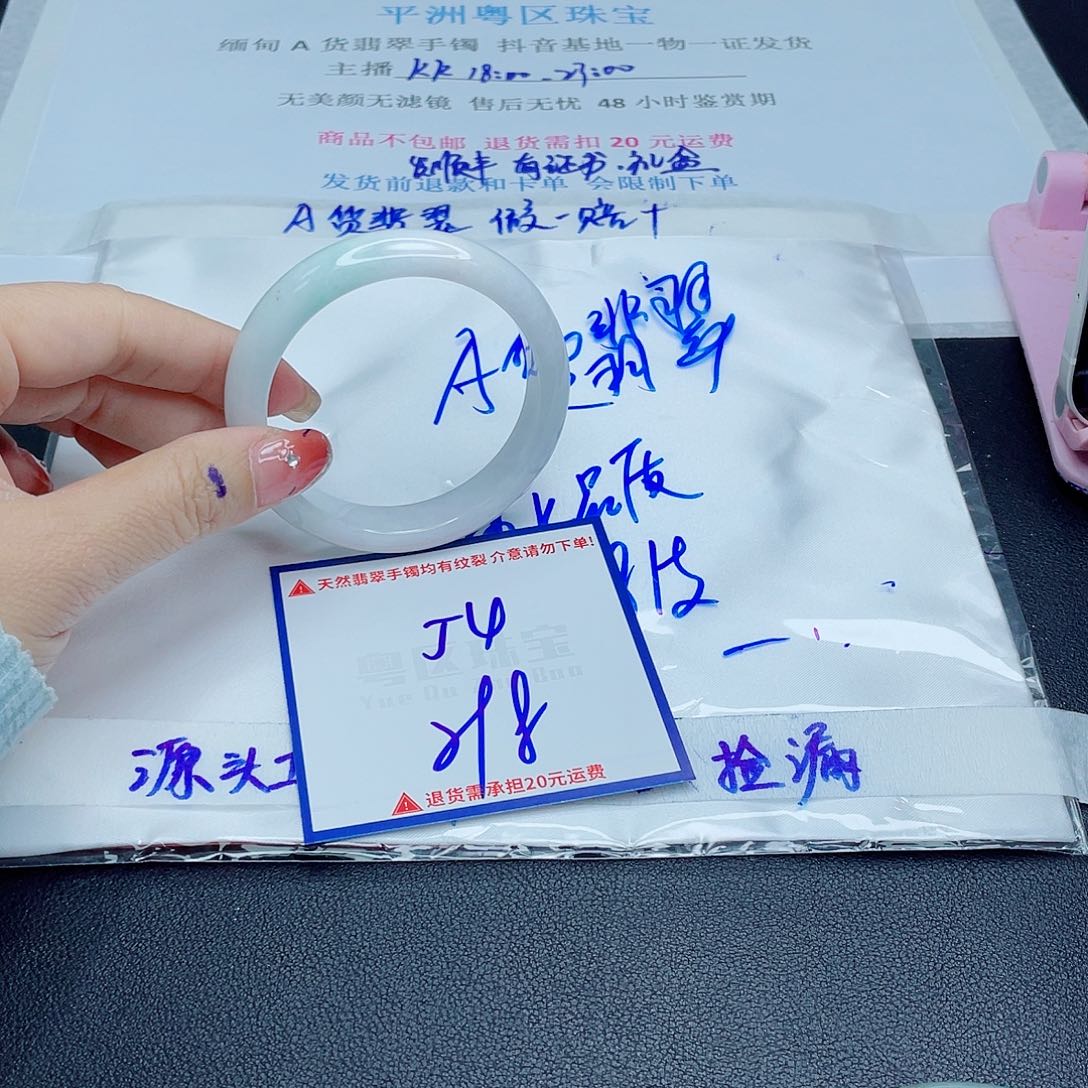 平洲粤区珠宝
缅甸 A 货翡翠手镯 抖音基地一物一证发货
主播 KK 18:00-23:00
无美颜无滤镜 售后无忧 48 小时鉴赏期
商品不包邮 退货需扣 20 元运费
发顺丰 有证书.礼盒
发货前退款和卡单 会限制下单
A货翡翠 假一赔十
A货翡翠
品质
天然翡翠手镯均有纹裂 介意请勿下单!
J4
粤区珠宝
Yue Qu Zhu Bao
退货需承担20元运费
源头工
捡漏